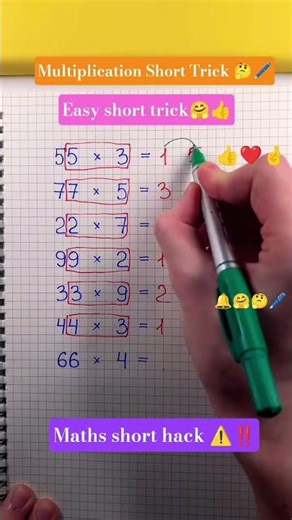 Multiplication Short Trick 🤔🖊️
Easy short trick🤗👍
55 × 3 = 1 5
77 × 5 = 3
22 × 7 =
99 × 2 = 1
33 × 9 = 2
44 × 3 = 1
66 × 4 =
Maths short hack ⚠️ ‼️